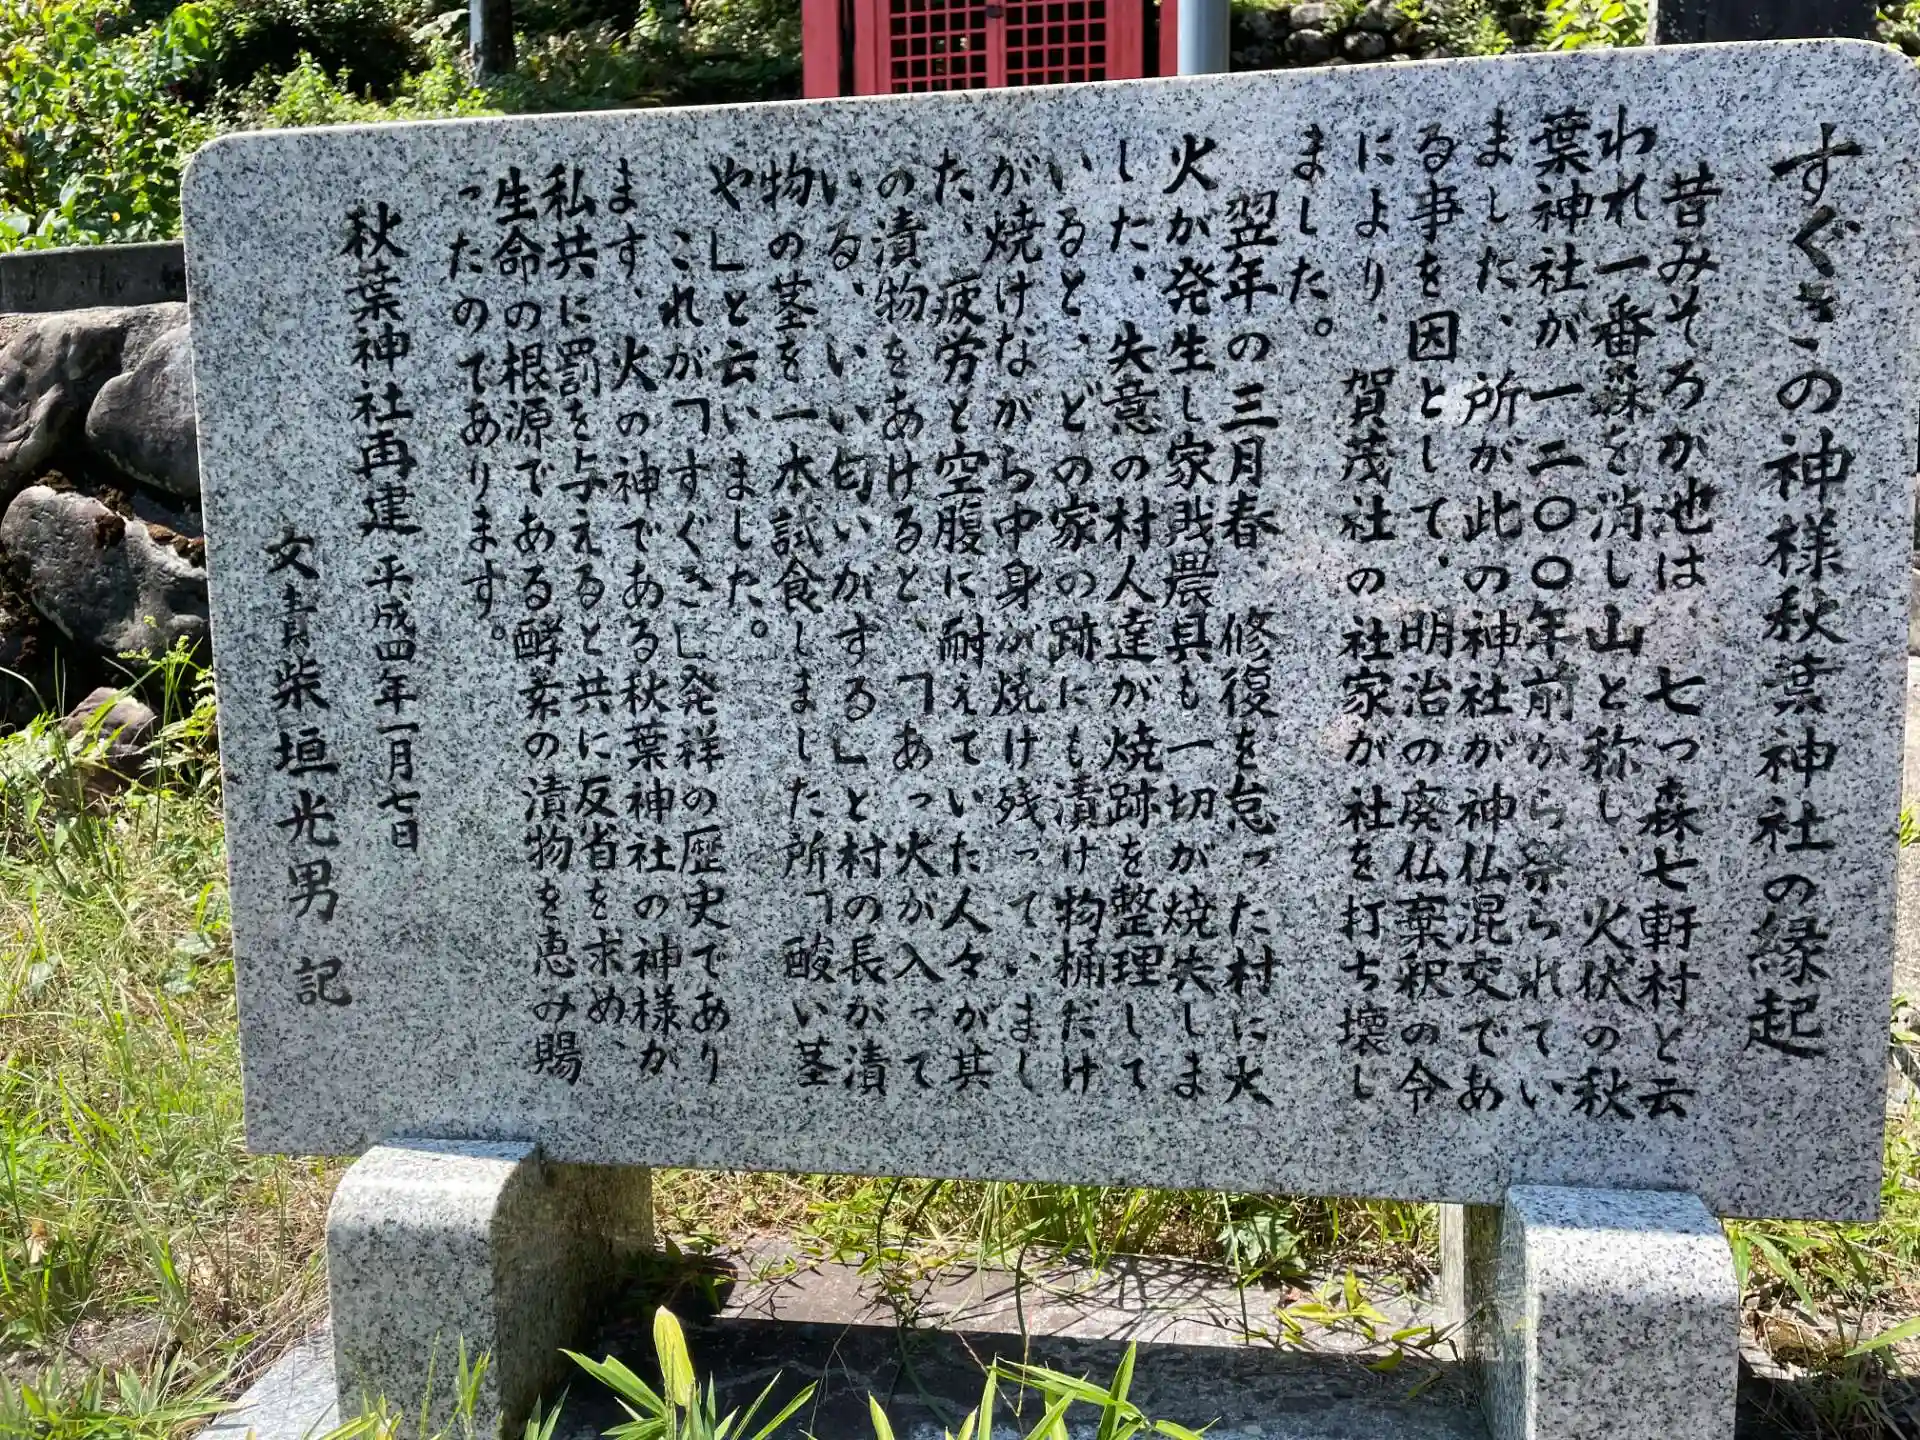 すぐきの神様秋葉神社の縁起
昔みそろが池は、七つ森七軒村と云
われ一番森を消し山と称し、火伏の秋
葉神社が一二〇〇年前から祭られてい
ました、所が此の神社が神仏混交であ
る事を因として、明治の廃仏棄釈の令
により、賀茂社の社家が社を打ち壊し
ました。
翌年の三月春、修復を怠った村に火
火が発生し家戝農具も一切が焼失しま
した、失意の村人達が焼跡を整理して
いると、どの家の跡にも漬け物桶だけ
が焼けながら中身が焼け残っていまし
た、疲労と空腹に耐えていた人々が其
の漬物をあけると、「あっ火が入って
いる、いい匂いがする」と村の長が漬
物の茎を一本試食しました所「酸い茎
や」と云いました。
これが「すぐき」発祥の歴史であり
ます、火の神である秋葉神社の神様が
私共に罰を与えると共に反省を求め、
生命の根源である酵素の漬物を恵み賜
ったのであります。
秋葉神社再建平成四年一月七日
文責柴垣光男 記